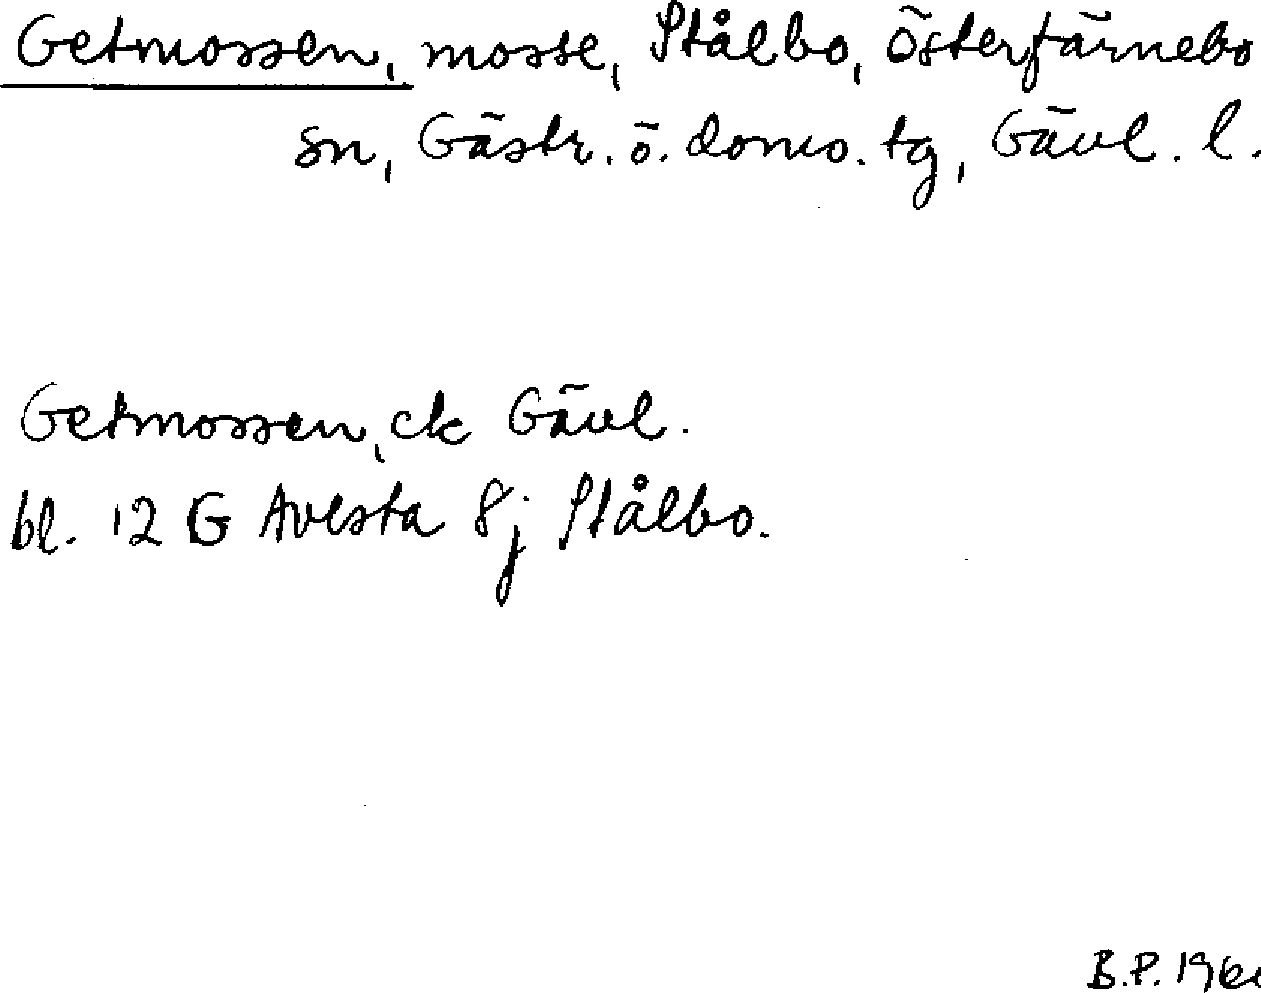 Getmossen, mosse, Stålbo, Österfärnebo
sn, Gästr. ö. doms. tg, Gävl. l.
Getmossen, ek Gävl.
bl. 12 G Avesta 8j Stålbo.
B.P.